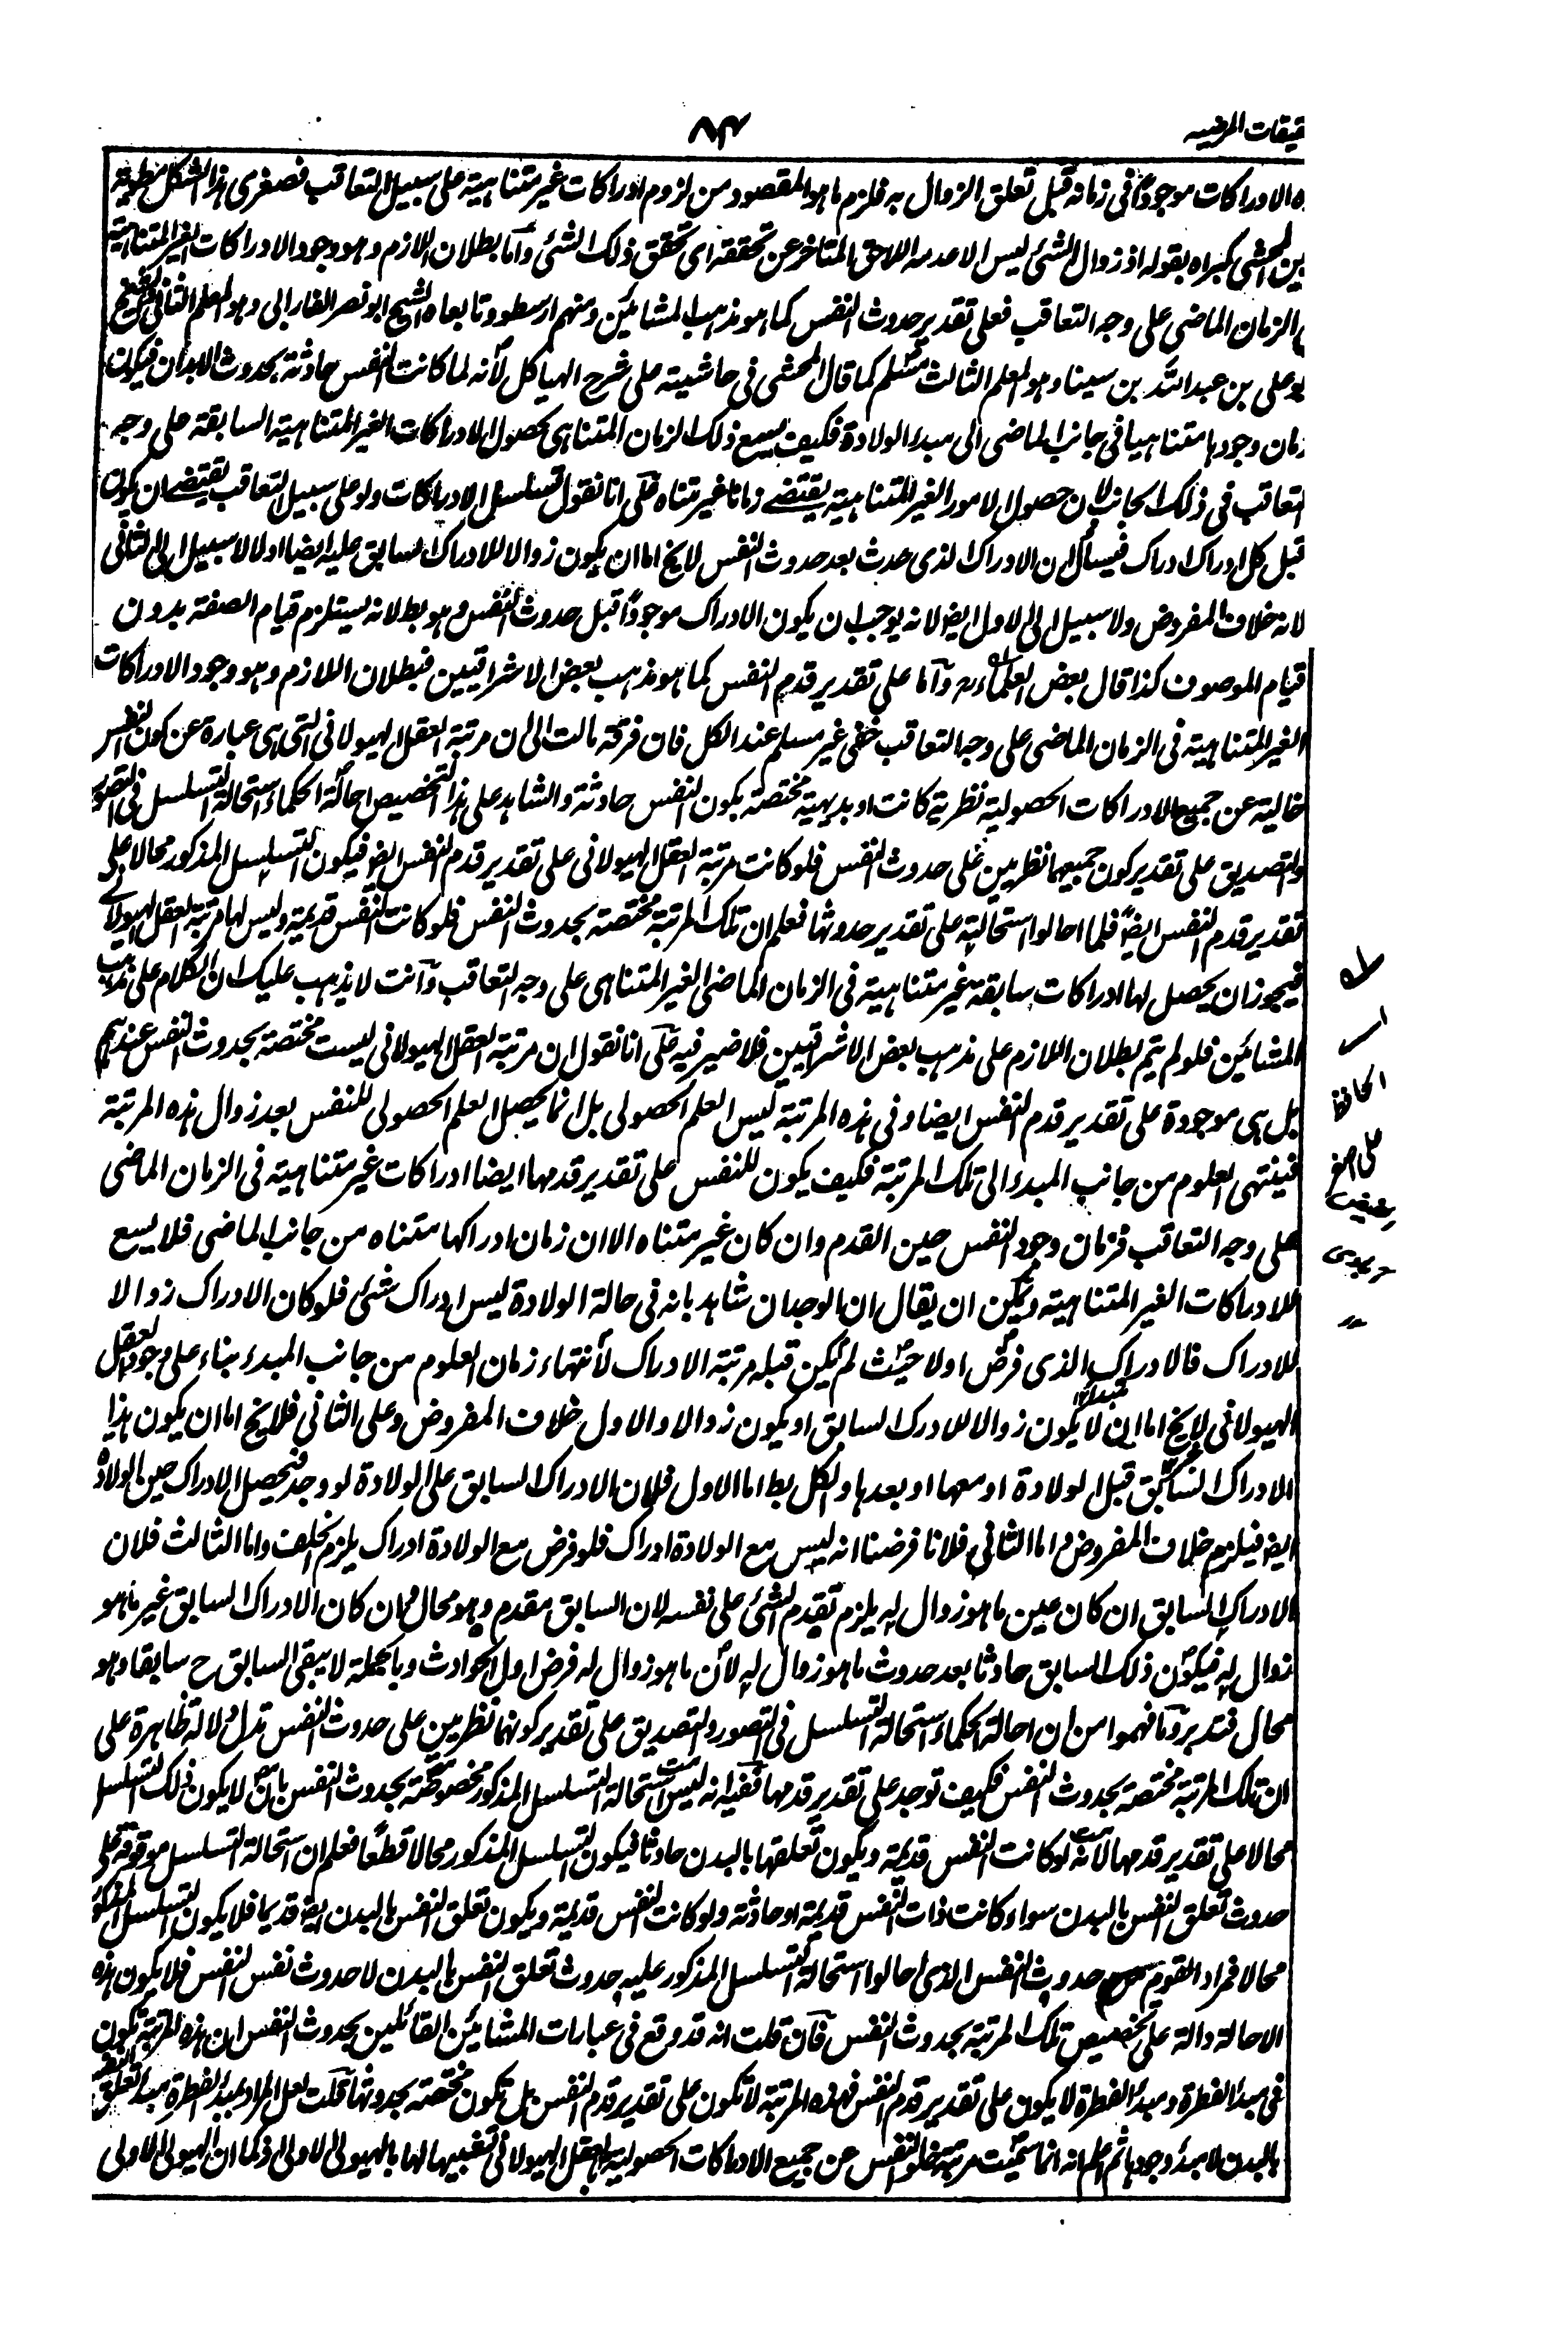 قيقات المرضيه
۸۴
ه الادراكات موجودًا فى زمانه قبل تعلق الزوال به فلزم ما هو المقصود من لزوم ادراكات غير متناهية على سبيل التعاقب فصغرى هذا الشكل مطوية
بين المحشى كبراه بقوله اذ زوال الشئ ليس الا عدمه اللاحق المتاخر عن تحققه اى تحقق ذلك الشئ وآما بطلان اللازم وهو وجود الادراكات الغير المتناهية
الزمان الماضى على وجه التعاقب فعلى تقدير حدوث النفس كما هو مذهب المشائين ومنهم ارسطو وتابعاه الشيخ ابو نصر الفارابى وهو المعلم الثانى والشيخ
بوعلى بن عبد الله بن سينا وهو المعلم الثالث مسلم كما قال المحشى فى حاشيته على شرح الهياكل لأنه لما كانت النفس حادثة بحدوث الابدان فيكون
زمان وجودها متناهيا فى جانب الماضى الى مبدء الولادة فكيف يسع ذلك الزمان المتناهى بحصول الادراكات الغير المتناهية السابقة على وجه
التعاقب فى ذلك الجانب لان حصول الامور الغير المتناهية يقتضى زمانا غير متناه على انا نقول تسلسل الادراكات ولو على سبيل التعاقب يقتضى ان يكون
قبل كل ادراك ادراك فيسأل ان الادراك الذى حدث بعد حدوث النفس لايخ اما ان يكون زوالا للادراك السابق عليه ايضا اولا لا سبيل الى الثانى
لانه خلاف المفروض ولا سبيل الى الاول ايضا لانه يوجب ان يكون الادراك موجودًا قبل حدوث النفس وهو بط لانه يستلزم قيام الصفة بدون
قيام الموصوف كذا قال بعض العلماء وآما على تقدير قدم النفس كما هو مذهب بعض الاشراقيين فبطلان اللازم وهو وجود الادراكات
الغير المتناهية فى الزمان الماضى على وجه التعاقب خفى غير مسلم عند الكل فان فرقة مالت الى ان مرتبة العقل الهيولانى التى هى عبارة عن كون النفس
خالية عن جميع الادراكات الحصولية نظرية كانت او بديهية مختصة بكون النفس حادثة والشاهد على هذا التخصيص احالة الحكماء استحالة التسلسل فى التصور
والتصديق على تقدير كون جميعهما نظريين على حدوث النفس فلو كانت مرتبة العقل الهيولانى على تقدير قدم النفس ايضا فيكون التسلسل المذكور محالا على
تقدير قدم النفس ايضًا فلما احالوا استحالته على تقدير حدوثها فعلم ان تلك المرتبة مختصة بحدوث النفس فلو كانت النفس قديمة وليس لها مرتبة العقل الهيولانى
فيجوز ان يحصل لها ادراكات سابقة غير متناهية فى الزمان الماضى الغير المتناهى على وجه التعاقب وآنت لا يذهب عليك ان الكلام على مذهب
المشائين فلو لم يتم بطلان اللازم على مذهب بعض الاشراقيين فلا ضير فيه على انا نقول ان مرتبة العقل الهيولانى ليست مختصة بحدوث النفس عندهم
بل هى موجودة على تقدير قدم النفس ايضا وفى هذه المرتبة ليس العلم الحصولى بل انما يحصل العلم الحصولى للنفس بعد زوال هذه المرتبة
فينتهى العلوم من جانب المبدء الى تلك المرتبة فكيف يكون للنفس على تقدير قدمها ايضا ادراكات غير متناهية فى الزمان الماضى
على وجه التعاقب فزمان وجود النفس حين القدم وان كان غير متناه الا ان زمان ادراكها متناه من جانب الماضى فلا يسع
للادراكات الغير المتناهية ويمكن ان يقال ان الوجدان شاهد بانه فى حالة الولادة ليس ادراك شئ فلو كان الادراك زوالا
للادراك فالادراك الذى فرض اولا حيث لم يكن قبله مرتبة الادراك لأنتهاء زمان العلوم من جانب المبدء بناء على وجود العقل
الهيولانى لايخ اما ان لا يكون زوالا للادرك السابق او يكون زوالا والاول خلاف المفروض وعلى الثانى فلايخ اما ان يكون هذا
الادراك السابق قبل الولادة او معها او بعدها والكل بط اما الاول فلان الادراك السابق على الولادة لو وجد فيحصل الادراك حين الولادة
ايضا فيلزم خلاف المفروض واما الثانى فلانا فرضنا انه ليس مع الولادة ادراك فلو فرض مع الولادة ادراك يلزم الخلف واما الثالث فلان
الادراك السابق ان كان عين ما هو زوال له يلزم تقدم الشئ على نفسه لان السابق مقدم وهو محال وان كان الادراك السابق غير ما هو
زوال له فيكون ذلك السابق حادثا بعد حدوث ما هو زوال له لأن ما هو زوال له فرض اول الحوادث وبالجملة لا يبقى السابق ح سابقا وهو
محال فتدبر وآما فهموا من ان احالة الحكماء استحالة التسلسل فى التصور والتصديق على تقدير كونهما نظريين على حدوث النفس تدل دلالة ظاهرة على
ان تلك المرتبة مختصة بحدوث النفس فكيف توجد على تقدير قدمها ففيه انه ليس استحالة التسلسل المذكور مخصوصة بحدوث النفس بان لا يكون ذلك التسلسل
محالا على تقدير قدمها لانه لو كانت النفس قديمة ويكون تعلقها بالبدن حادثا فيكون التسلسل المذكور محالا قطعًا فعلم ان استحالة التسلسل موقوفة على
حدوث تعلق النفس بالبدن سواء كانت ذات النفس قديمة او حادثة ولو كانت النفس قديمة ويكون تعلق النفس بالبدن ايضا قديما فلا يكون التسلسل المذكور
محالا فمراد القوم من حدوث النفس الذى احالوا استحالة التسلسل المذكور عليه حدوث تعلق النفس بالبدن لا حدوث نفس النفس فلا يكون هذه
الاحالة دالة على تخصيص تلك المرتبة بحدوث النفس فآن قلت انه قد وقع فى عبارات المشائين القائلين بحدوث النفس ان هذه المرتبة تكون
فى مبدء الفطرة ومبدء الفطرة لا يكون على تقدير قدم النفس فهذه المرتبة لا تكون على تقدير قدم النفس بل تكون مختصة بحدوثها قلت لعل المراد بمبدء الفطرة مبدء تعلق النفس
بالبدن لا مبدء وجودها ثم اعلم انه انما سميت مرتبة خلو النفس عن جميع الادراكات الحصولية بالعقل الهيولانى تشبيها لها بالهيولى الاولى فكما ان الهيولى الاولى
الحافظ
على اصغر